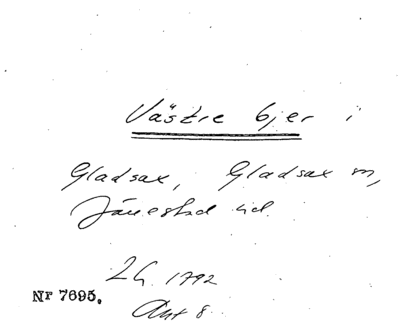 Västre bjer i
Gladsax, Gladsax sn,
Järrestad hd.
LG. 1792
Nr 7695.
Akt 8